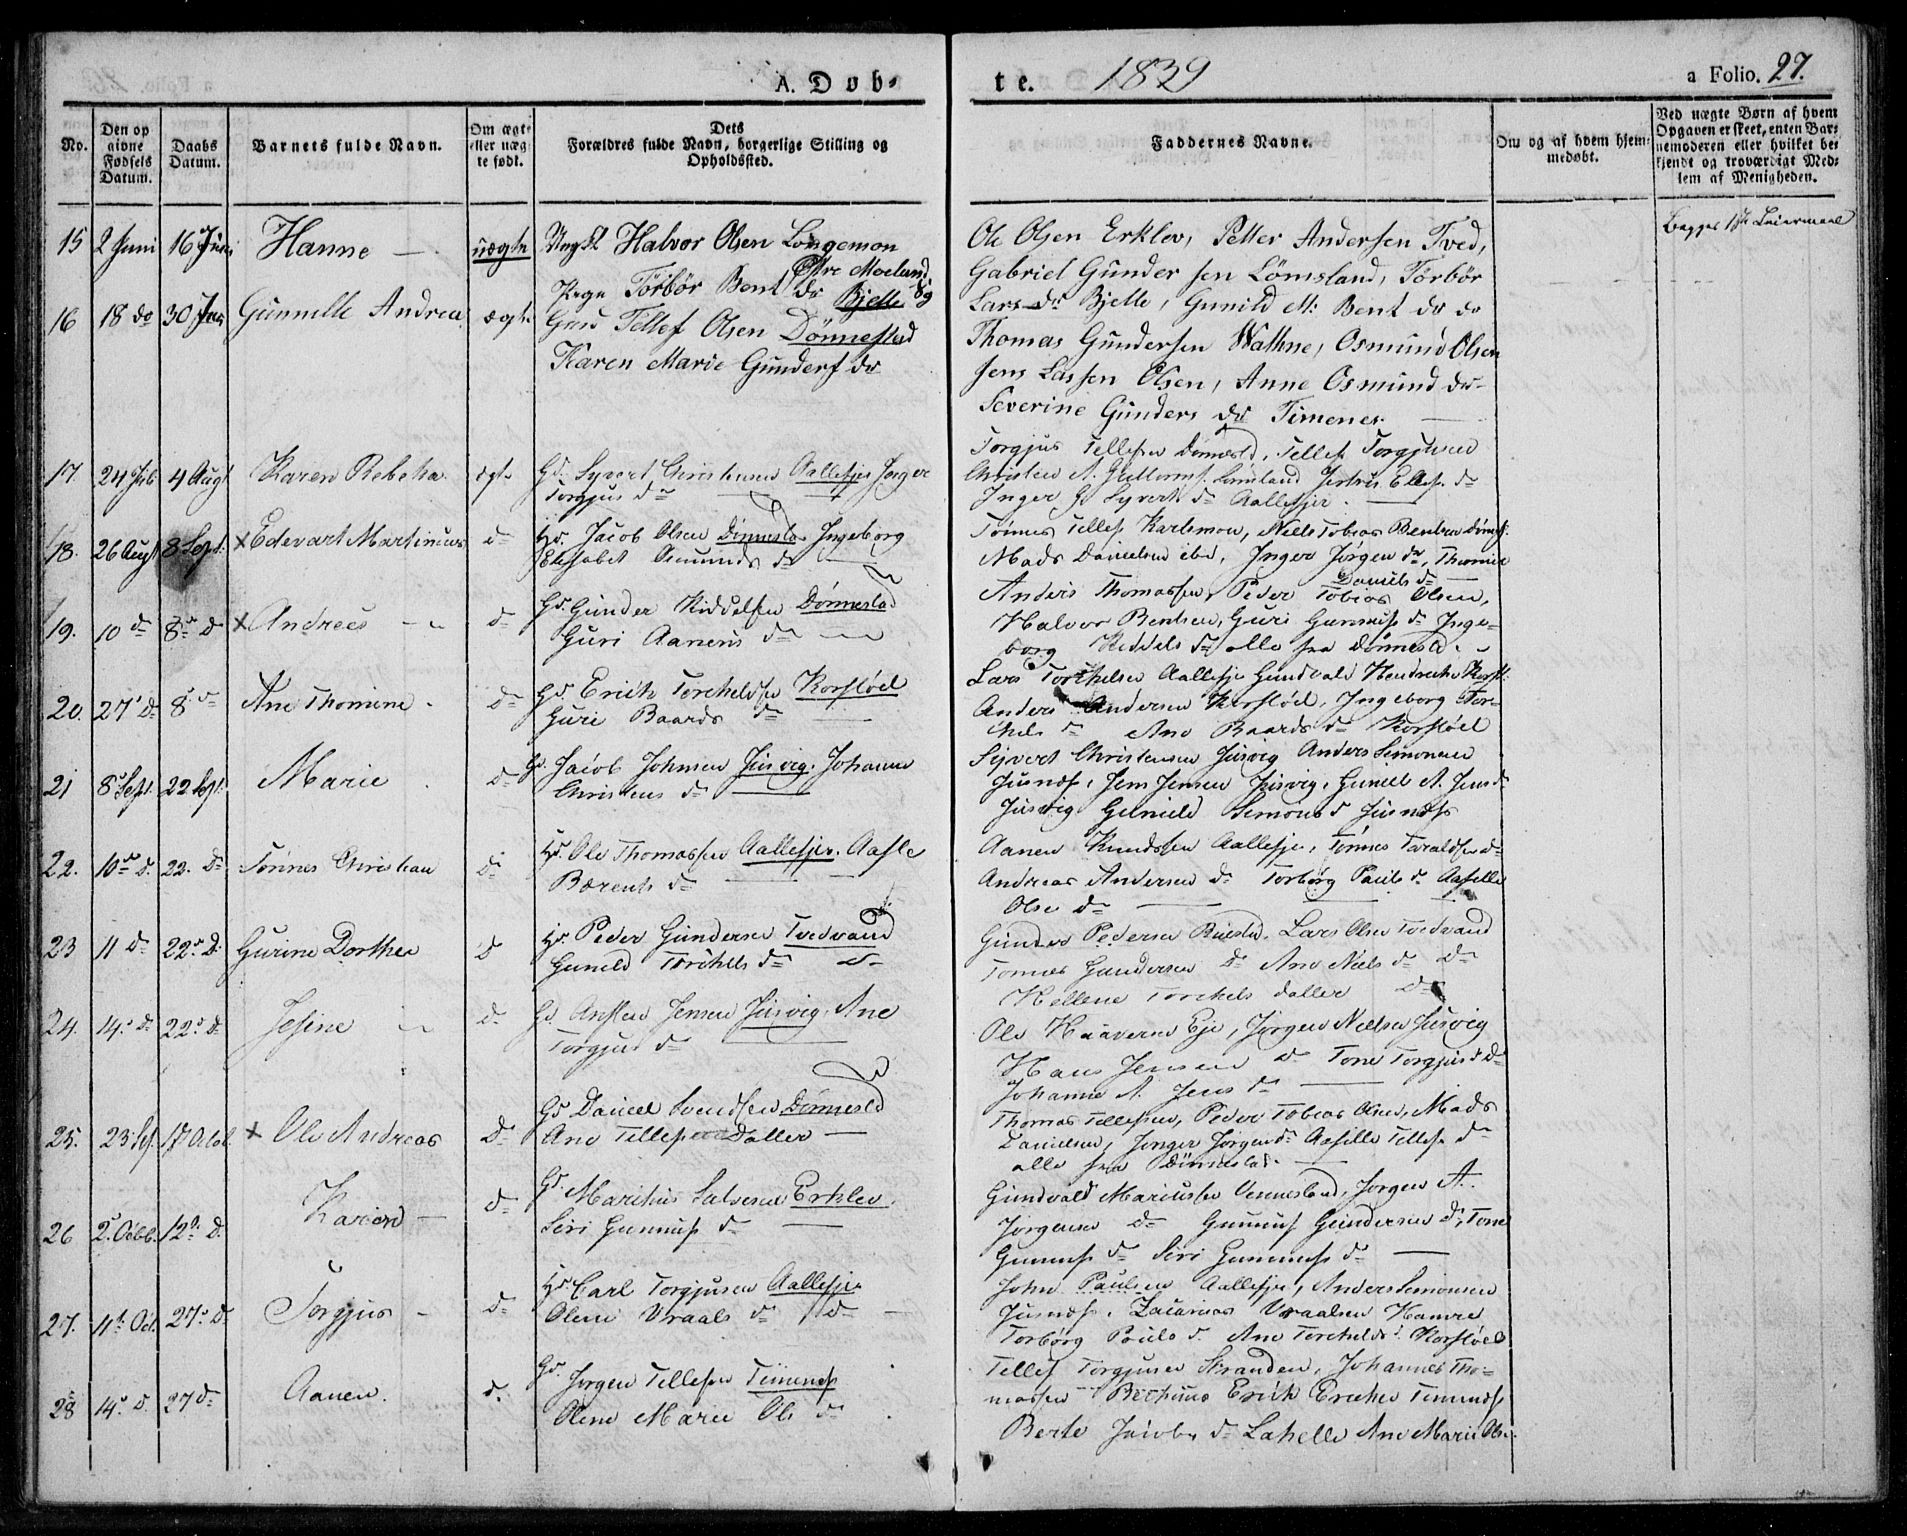 A. Døb-
te. 1839
a Folio. 27.
No.
Den op
givne
Fødsels
Datum.
Daabs
Datum.
Barnets fulde Navn.
Om ægte
eller uæg
te født.
Dets
Forældres fulde Navn, borgerlige Stilling og
Opholdssted.
Faddernes Navne.
Om og af hvem hjem-
medøbt.
Ved uægte Børn af hvem
Opgaven er skeet, enten Bar-
nemoderen eller hvilket be-
kjendt og troværdigt Med-
lem af Menigheden.
15 2 Juni 16 Juni Hanne — uægte Ungk Halvor Olsen Longemon
Østre Moelund
Pige Törbör Bent dr Bjelle
Ole Olsen Erklev, Petter Andersen Tved,
Gabriel Gunder sen Lömsland, Törbör
Lars dr Bjelle, Gunild M: Bent dr do
Begges 1ste Leiermaal
16 18 do 30 Juni Gunnille Andrea ægte Gmd Tellef Olsen Dönnestad
Karen Marie Gunders dr
Thomas Gundersen Wathne, Osmund Olsen
Jens Lassen Olsen, Anne Osmund dr
Severine Gunders dr Timenes
17. 24 Juli 4 Augt Karen Rebekka ægte Gd. Syvert Christensen Aallefjer Inger
Torgjus dr —
Torgjus Tellefsen Dönnestd, Tellef Torgjusen
Christen A. Guttorms. Lömsland Jertru Ellef. dr
Inger G Syverts dr Aallefjer.
18. 26 Augt 8 Sept. x Edevart Martinius d Hd. Jacob Olsen Dönnestad Ingeborg
Elisabet Osmunds dr
Tönnes Tellefs Karlsmon, Niels Tobias Bentsen Dönnest.
Mads Danielsen ibd, Inger Jörgen dr, Thomine
Daniels dr —
19. 10 d 8 d x Andreas — d Gd. Gunder Kiddelsen Dönnestad
Guri Aanens dr —
Anders Thomassen, Peder Tobias Olsen,
Halvor Bentsen, Guri Gunnufs dr Inge-
borg Kiddels dr alle fra Dönnestd.
20. 27 d 8 d Ane Thomine d Gd. Erich Torchelsen Korslöel
Guri Baards dr —
Lars Torchelsen Aallefje Gundvald Hendrichs Korsl.
Anders Andersen Korslöel, Ingeborg Tor-
chels dr Ane Baards dr Korslöel
21 8 Sept. 22 Sept. Marie d Gd. Jacob Johnsen Jusvig. Johanne
Christens dr —
Syvert Christensen Jusvig Anders Simonsen
Jusnæs, Jens Jensen Jusvig, Gunild A. Jens dr
Jusvig Gunild Simons d Jusnæs
22. 10 d. 22. d Tönnes Christian d Hd. Ole Thomassen Aallefjer. Aasle
Bærents dr —
Aanen Knudssen Aallefje, Tönnes Taraldsen dr
Andreas Andersen d Torborg Pauls d. Aasille
Olse dr —
23 11 d 22 d. Gurine Dorthea d Hd. Peder Gundersen Tvedvand
Gunild Torchels dr
Gunder Pedersen, Lars Olsen Tvedvand
Tönnes Gundersen d. Ane Niels dr d
Hellene Torchels datter d
24. 14 d 22 d Jesine d Gd. Ansten Jensen Jusvig. Ane
Torgjus dr —
Ole Haavorsen Eje, Jörgen Nielsen Jusvig
Hans Jensen d Tone Torgjus dr d
Johanne A. Jens dr —
25. 23 Sep. 17 Octob. x Ole Andreas d Gd Daniel Svendsen Dönnestd
Ane Tellefs datter —
Thomas Tellefsen, Peder Tobias Olsen, Mads
Danielsen, Inger Jörgens dr Aasille Tellefs dr
alle fra Dönnestad. —
26 2 Octb. 12 d. Karen — d Gd. Marthius Salvesen Erklev.
Siri Gunnufs dr —
Gundvald Mariussen Vennesland, Jörgen A.
Jörgensen d Gunnuf Gundersen d, Tone
Gunnufs dr Siri Gunnufs dr —
27. 11 Oct. 27 d Torgjus — d Hd Carl Torgjusen Aallefje
Olene Vraals dr d —
John Paulsen Aallefje, Anders Simonsen
Jusnæs. Zacarias Vraalsen Hamre
Torborg Pouls d. Ane Torchelds d. Korslöel
28 14 d. 27 d Aanen. d. Gd. Jörgen Tellefsen Timenæs
Olene Marie Ols dr
Tellef Torgjusen Stranden, Johannes Tho-
massen Erich Erichs Timenæs
Berte Jacobs dr Lahelle Ane Marie Ols.